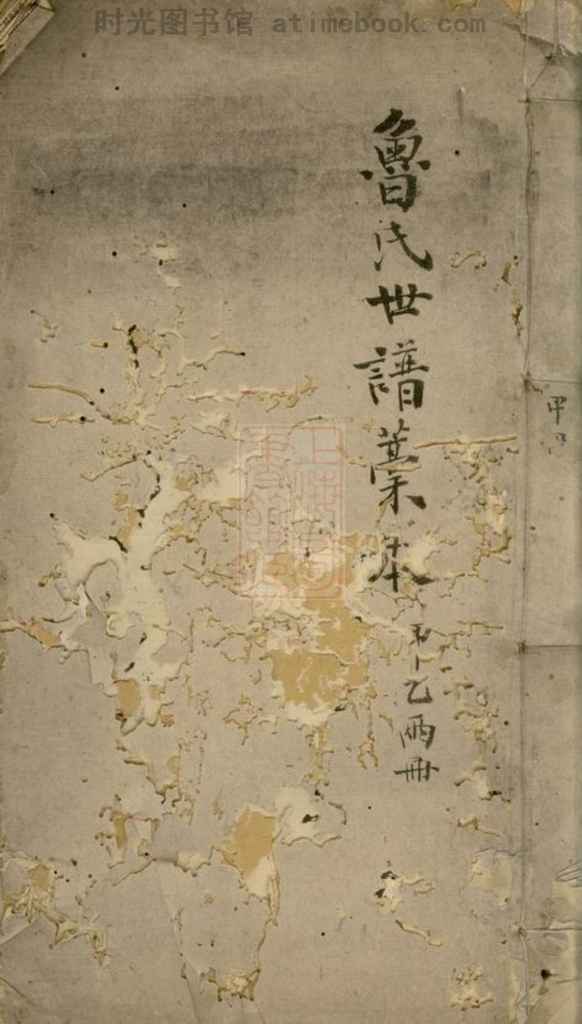 时光图书馆 atimebook.com
魯氏世譜藁本
乙兩冊
甲